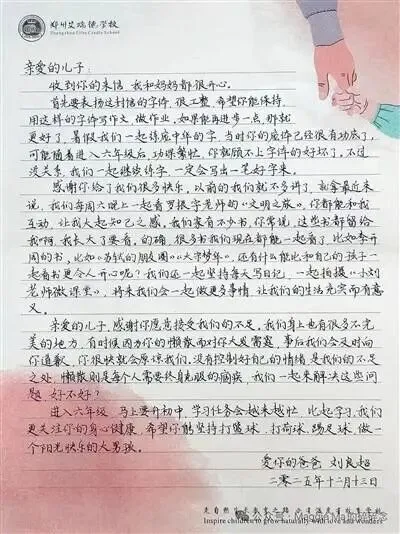 郑州艾瑞德学校
Zhengzhou Elite Cradle School
亲爱的儿子:
收到你的来信,我和妈妈都很开心。
首先要表扬这封信的字体,很工整,希望你能保持,
用这样的字体写作文、做作业,如果能再进步一点,那就
更好了,暑假我们一起练庞中华的字,当时你的字体已经很有功底了,
可能随着进入六年级后,功课繁忙,你就顾不上字体的好坏了,不过
没关系,我们一起继续练字,一定会写出一笔好字来。
感谢你给了我们很多快乐,以前的我们就不多讲,就拿最近来
说,我们每周六晚上一起看罗振宇老师的《文明之旅》,你都能和我
互动,让我大起知己之感。我们家有不少书,你常说,这些书都留给
我啊,我长大了要看,的确,很多书我们现在都能一起看了,比如李开
周的书,比如《苏轼的朋友圈》《大宋梦华》,还有什么能比和自己的孩子一
起看书更令人开心呢?我们还一起坚持每天写日记,一起拍摄《小刘
老师微课堂》,将来我们会一起做更多事情,让我们的生活充实而有意
义。
亲爱的儿子,感谢你愿意接受我们的不足。我们身上也有很多不完
美的地方,有时候因为你的懒散而对你大发雷霆,事后我们会及时向
你道歉,你很快就会原谅我们。没有控制好自己的情绪是我们的不足
之处,懒散则是每个人需要终身克服的痼疾,我们一起来解决这些问
题,好不好?
进入六年级,马上要升初中,学习任务会越来越忙,比起学习,我们
更关注你的身心健康,希望你能坚持打篮球、打荷球、踢足球,做一
个阳光快乐的大男孩。
爱你的爸爸 刘良超
二〇二五年十二月十三日
Inspire children to grow naturally with love and wonder
公众号:Maggie Ma的碎碎念